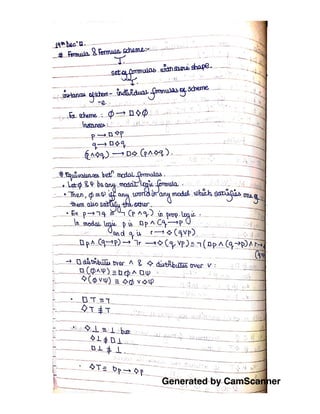 19th Dec'
# Formula & Formula Scheme:-
set of formulas with same shape.
instances of scheme - individual formulas of scheme
-e
Ex scheme : ϕ → □◇ϕ
Instances :
p → □◇p
q → □◇q
(p∧◇q) → □◇(p∧◇q).
# Equivalences betn modal formulas.
• Let ϕ & ψ be any modal logic formula.
• Then, ϕ ≡ ψ if any world in any model which satisfies one of
them also satisfy the other.
• Ex p → ¬q ≡ ¬(p∧q) in prop. logic.
In modal logic p is □p∧(q→p)
and q is r → ◇(q∨p)
□p∧(q→p) → ¬r → ◇(q∨p) ≡ ¬(□p∧(q→p)∧r→
→ □ distributes over ∧ & ◇ distributes over ∨ :
□(ϕ∧ψ) ≡ □ϕ∧□ψ
◇(ϕ∨ψ) ≡ ◇ϕ∨◇ψ
• □⊤ ≡ ⊤
◇⊤ ≢ ⊤
• ◇⊥ ≡ ⊥ but
◇⊥ ≢ □⊥
□⊥ ≢ ⊥
• ◇⊤ ≡ □p → ◇p
Generated by CamScanner